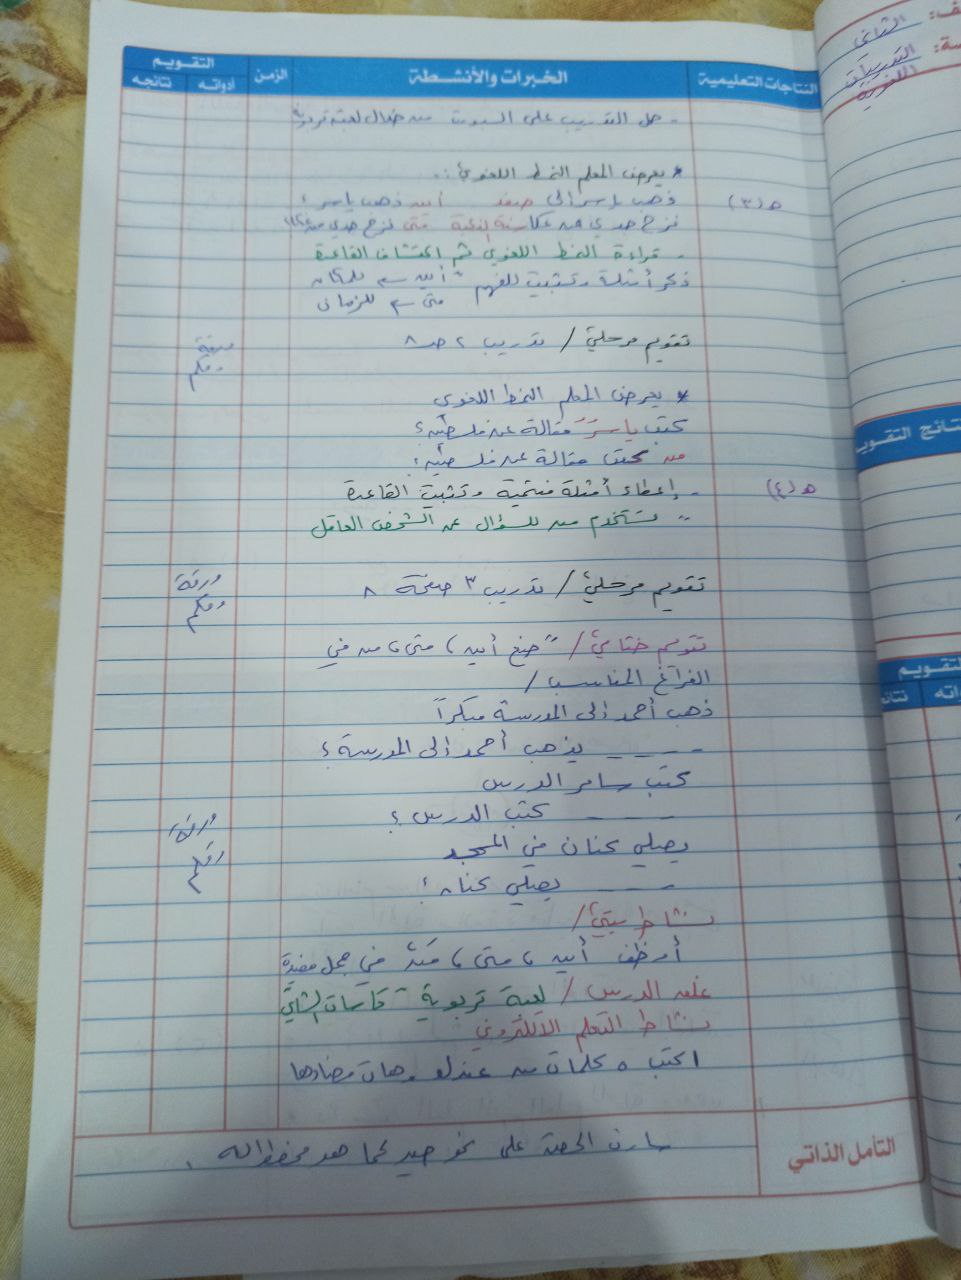 الثاني
التدريبات
اللغوية
النتاجات التعليمية
الخبرات والأنشطة
الزمن
التقويم
أدواته
نتائجه
- حل التدريب على السبورة من خلال لعبة تربوية
* يعرض المعلم النمط اللغوي :
هـ (٣)
ذهب ياسر إلى صفد أين ذهب ياسر ؟
نزح جدي عن عكا سنة النكبة متى نزح جدي عن عكا؟
- قراءة النمط اللغوي ثم اكتشاف القاعدة
ذكر أمثلة وتثبيت للفهم " أين للمكان
متى للزمان
تقويم مرحلي / تدريب ٢ ص ٨
ورقة
وقلم
* يعرض المعلم النمط اللغوي
كتب ياسر مقالة عن فلسطين ؟
من كتب مقالة عن فلسطين ؟
هـ (٤)
- إعطاء أمثلة منتمية وتثبيت القاعدة
- نستخدم من للسؤال عن الشخص العاقل
تقويم مرحلي / تدريب ٣ صفحة ٨
ورقة
وقلم
تقويم ختامي / " ضع أين ، متى ، من في
الفراغ المناسب /
ذهب أحمد إلى المدرسة مبكراً
- - - - يذهب أحمد إلى المدرسة ؟
كتب سامر الدرس
- - - - كتب الدرس ؟
يصلي كنان في المسجد
- - - - يصلي كنان ؟
ورقة
وقلم
نشاط بيتي /
أوظف أين ، متى ، من في جمل مفيدة
غلق الدرس / لعبة تربوية " كاسات الشاي
نشاط التعلم الإلكتروني
اكتب ٥ كلمات من عندك وهات مضادها
التأمل الذاتي
سارت الحصة على نحو جيد كما هو مخطط له .
نتائج التقويم
التقويم